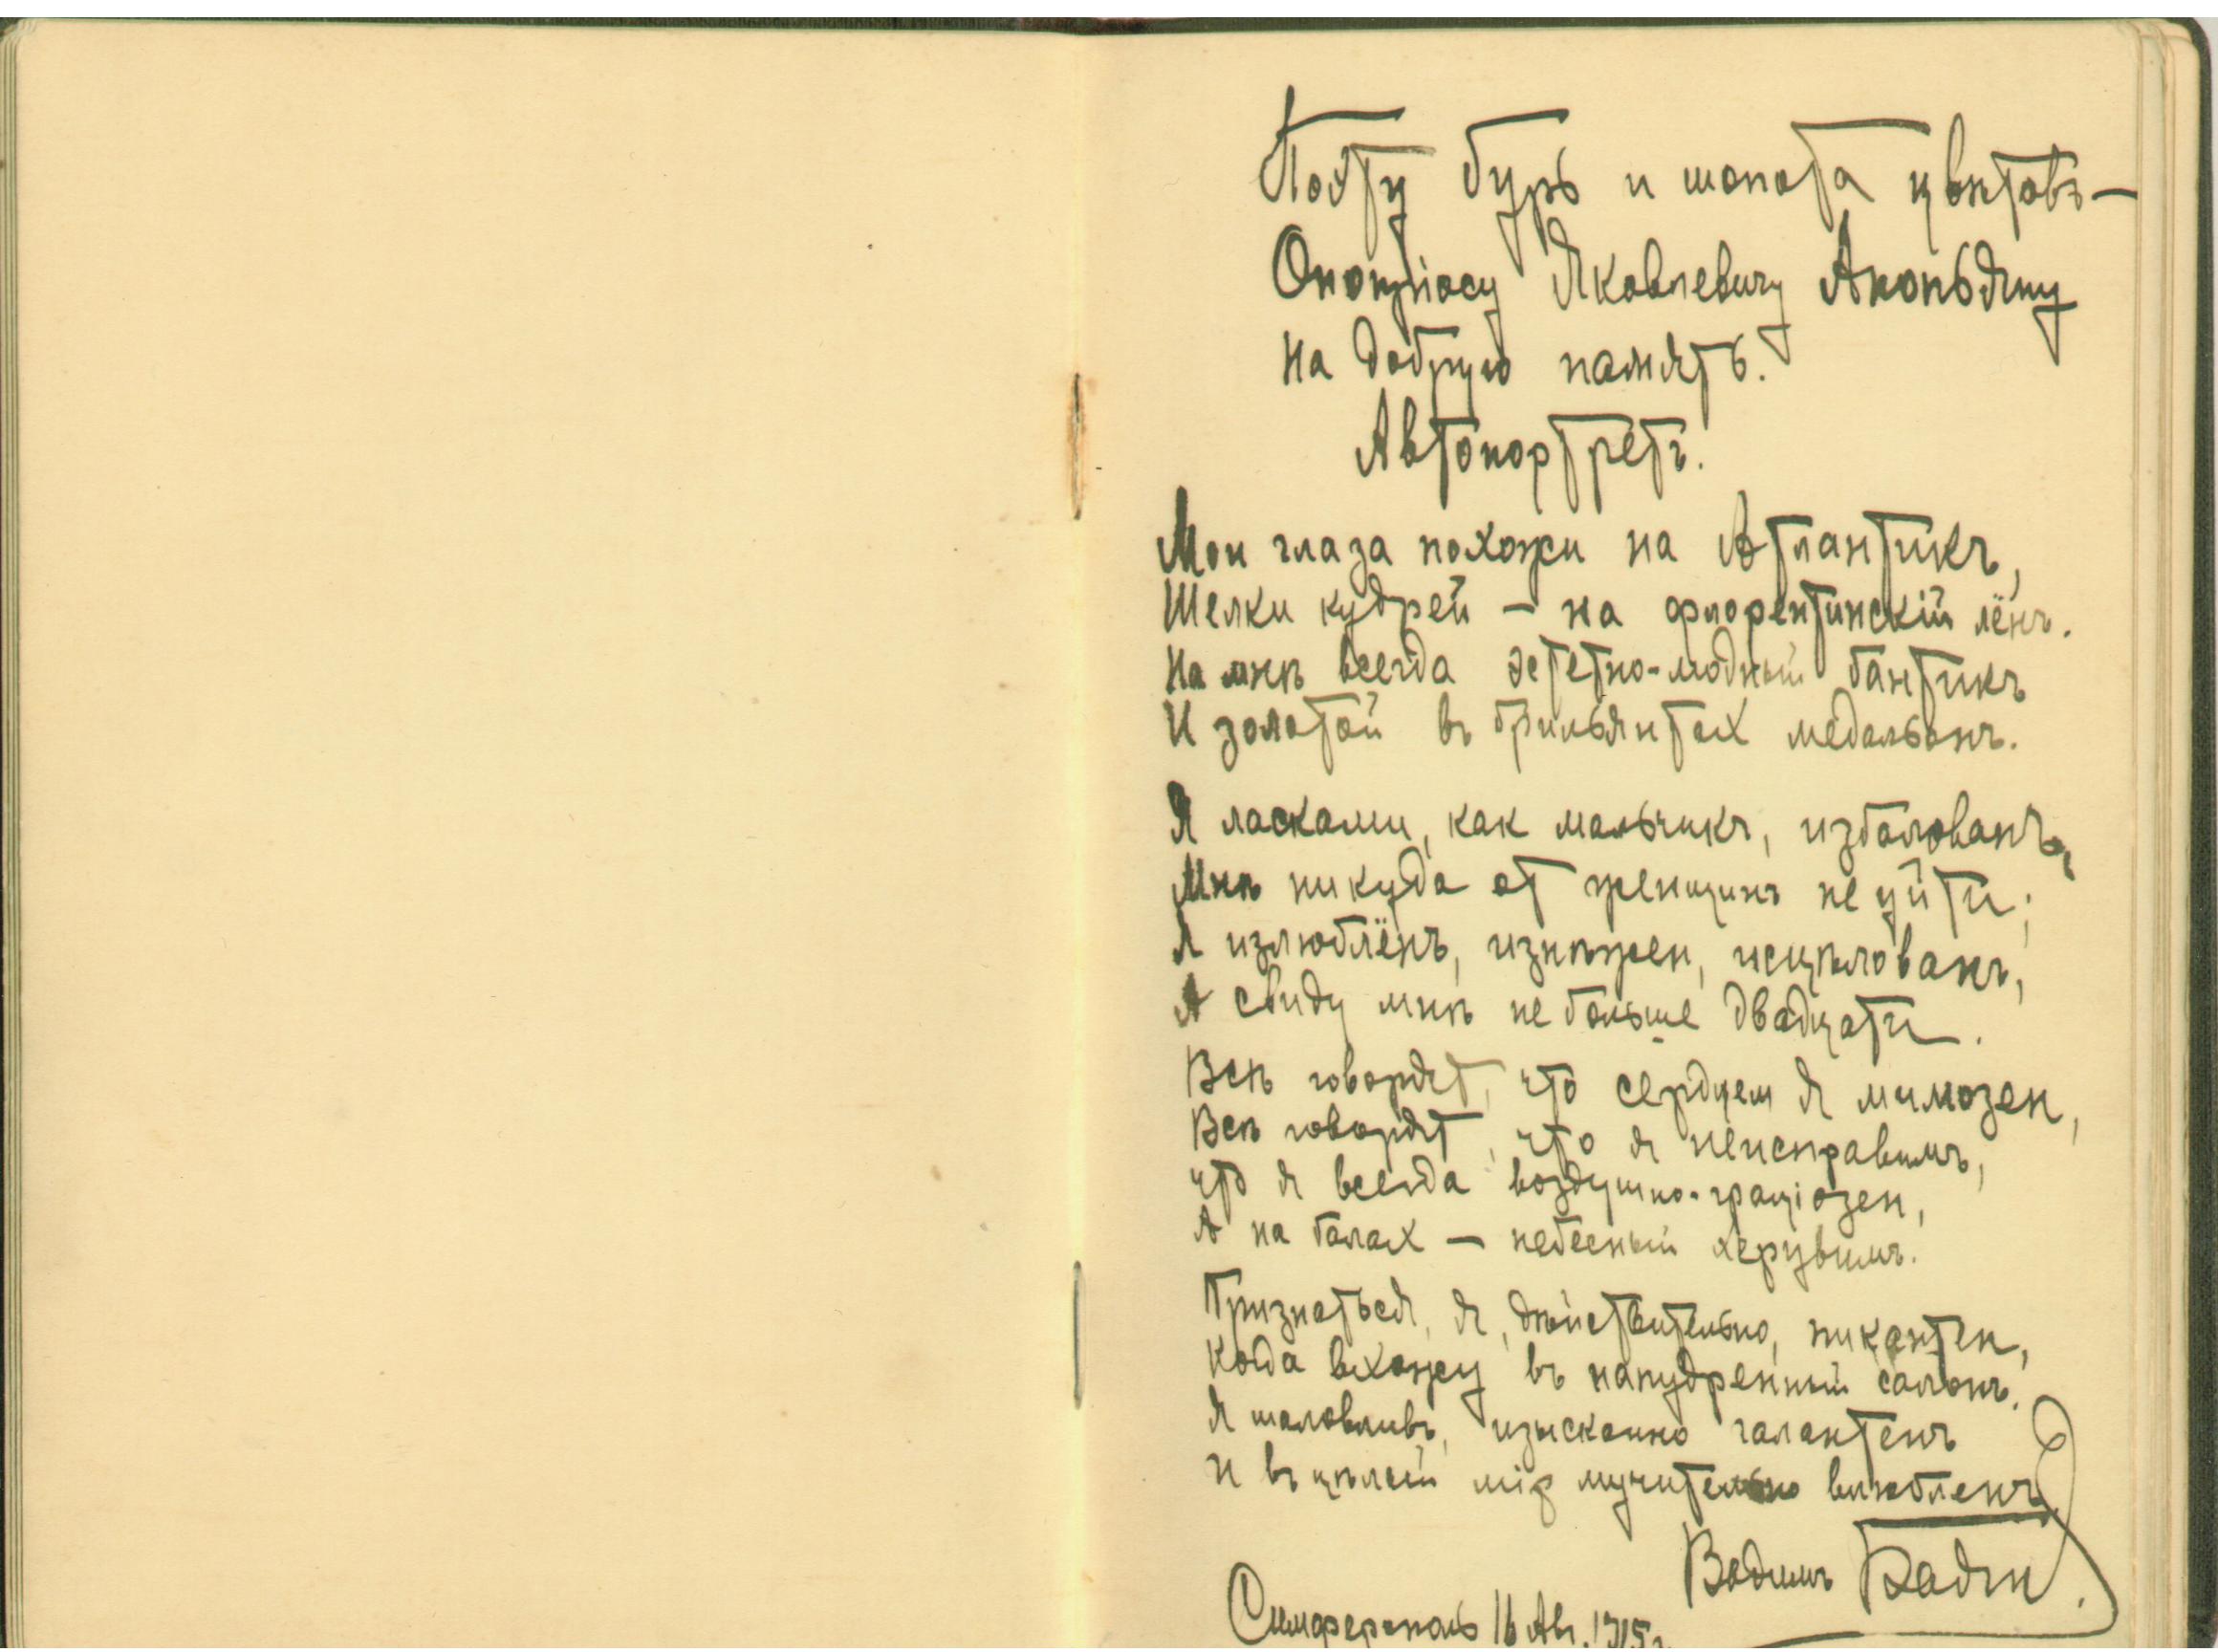 Поэту бурь и шопота цвѣтовъ —
Яковлевичу Акопьянцу
на добрую память.
Автопортретъ.
Мои глаза похожи на Атлантикъ,
Шелки кудрей — на флорентинскій лёнъ.
На мнѣ всегда эстетно-модный бантикъ
И золотой въ брильянтах медальонъ.
Я ласками, как мальчикъ, избалованъ,
Мнѣ никуда от женщинъ не уйти;
Я излюблёнъ, изнѣжен, исцѣлованъ,
А свиду мнѣ не больше двадцати.
Всѣ говорят, что сердцем я мимозен,
Всѣ говорят, что я неисправимъ,
Что я всегда воздушно-граціозен,
А на балах — небесный херувимъ.
Признаться, я, дѣйствительно, пикантен,
Когда вхожу въ напудренный салонъ.
Я шаловливъ, изысканно галантенъ
И въ цѣлый мір мучительно влюбленъ
Вадимъ Баян.
Симферополь 16 Авг. 1915 г.